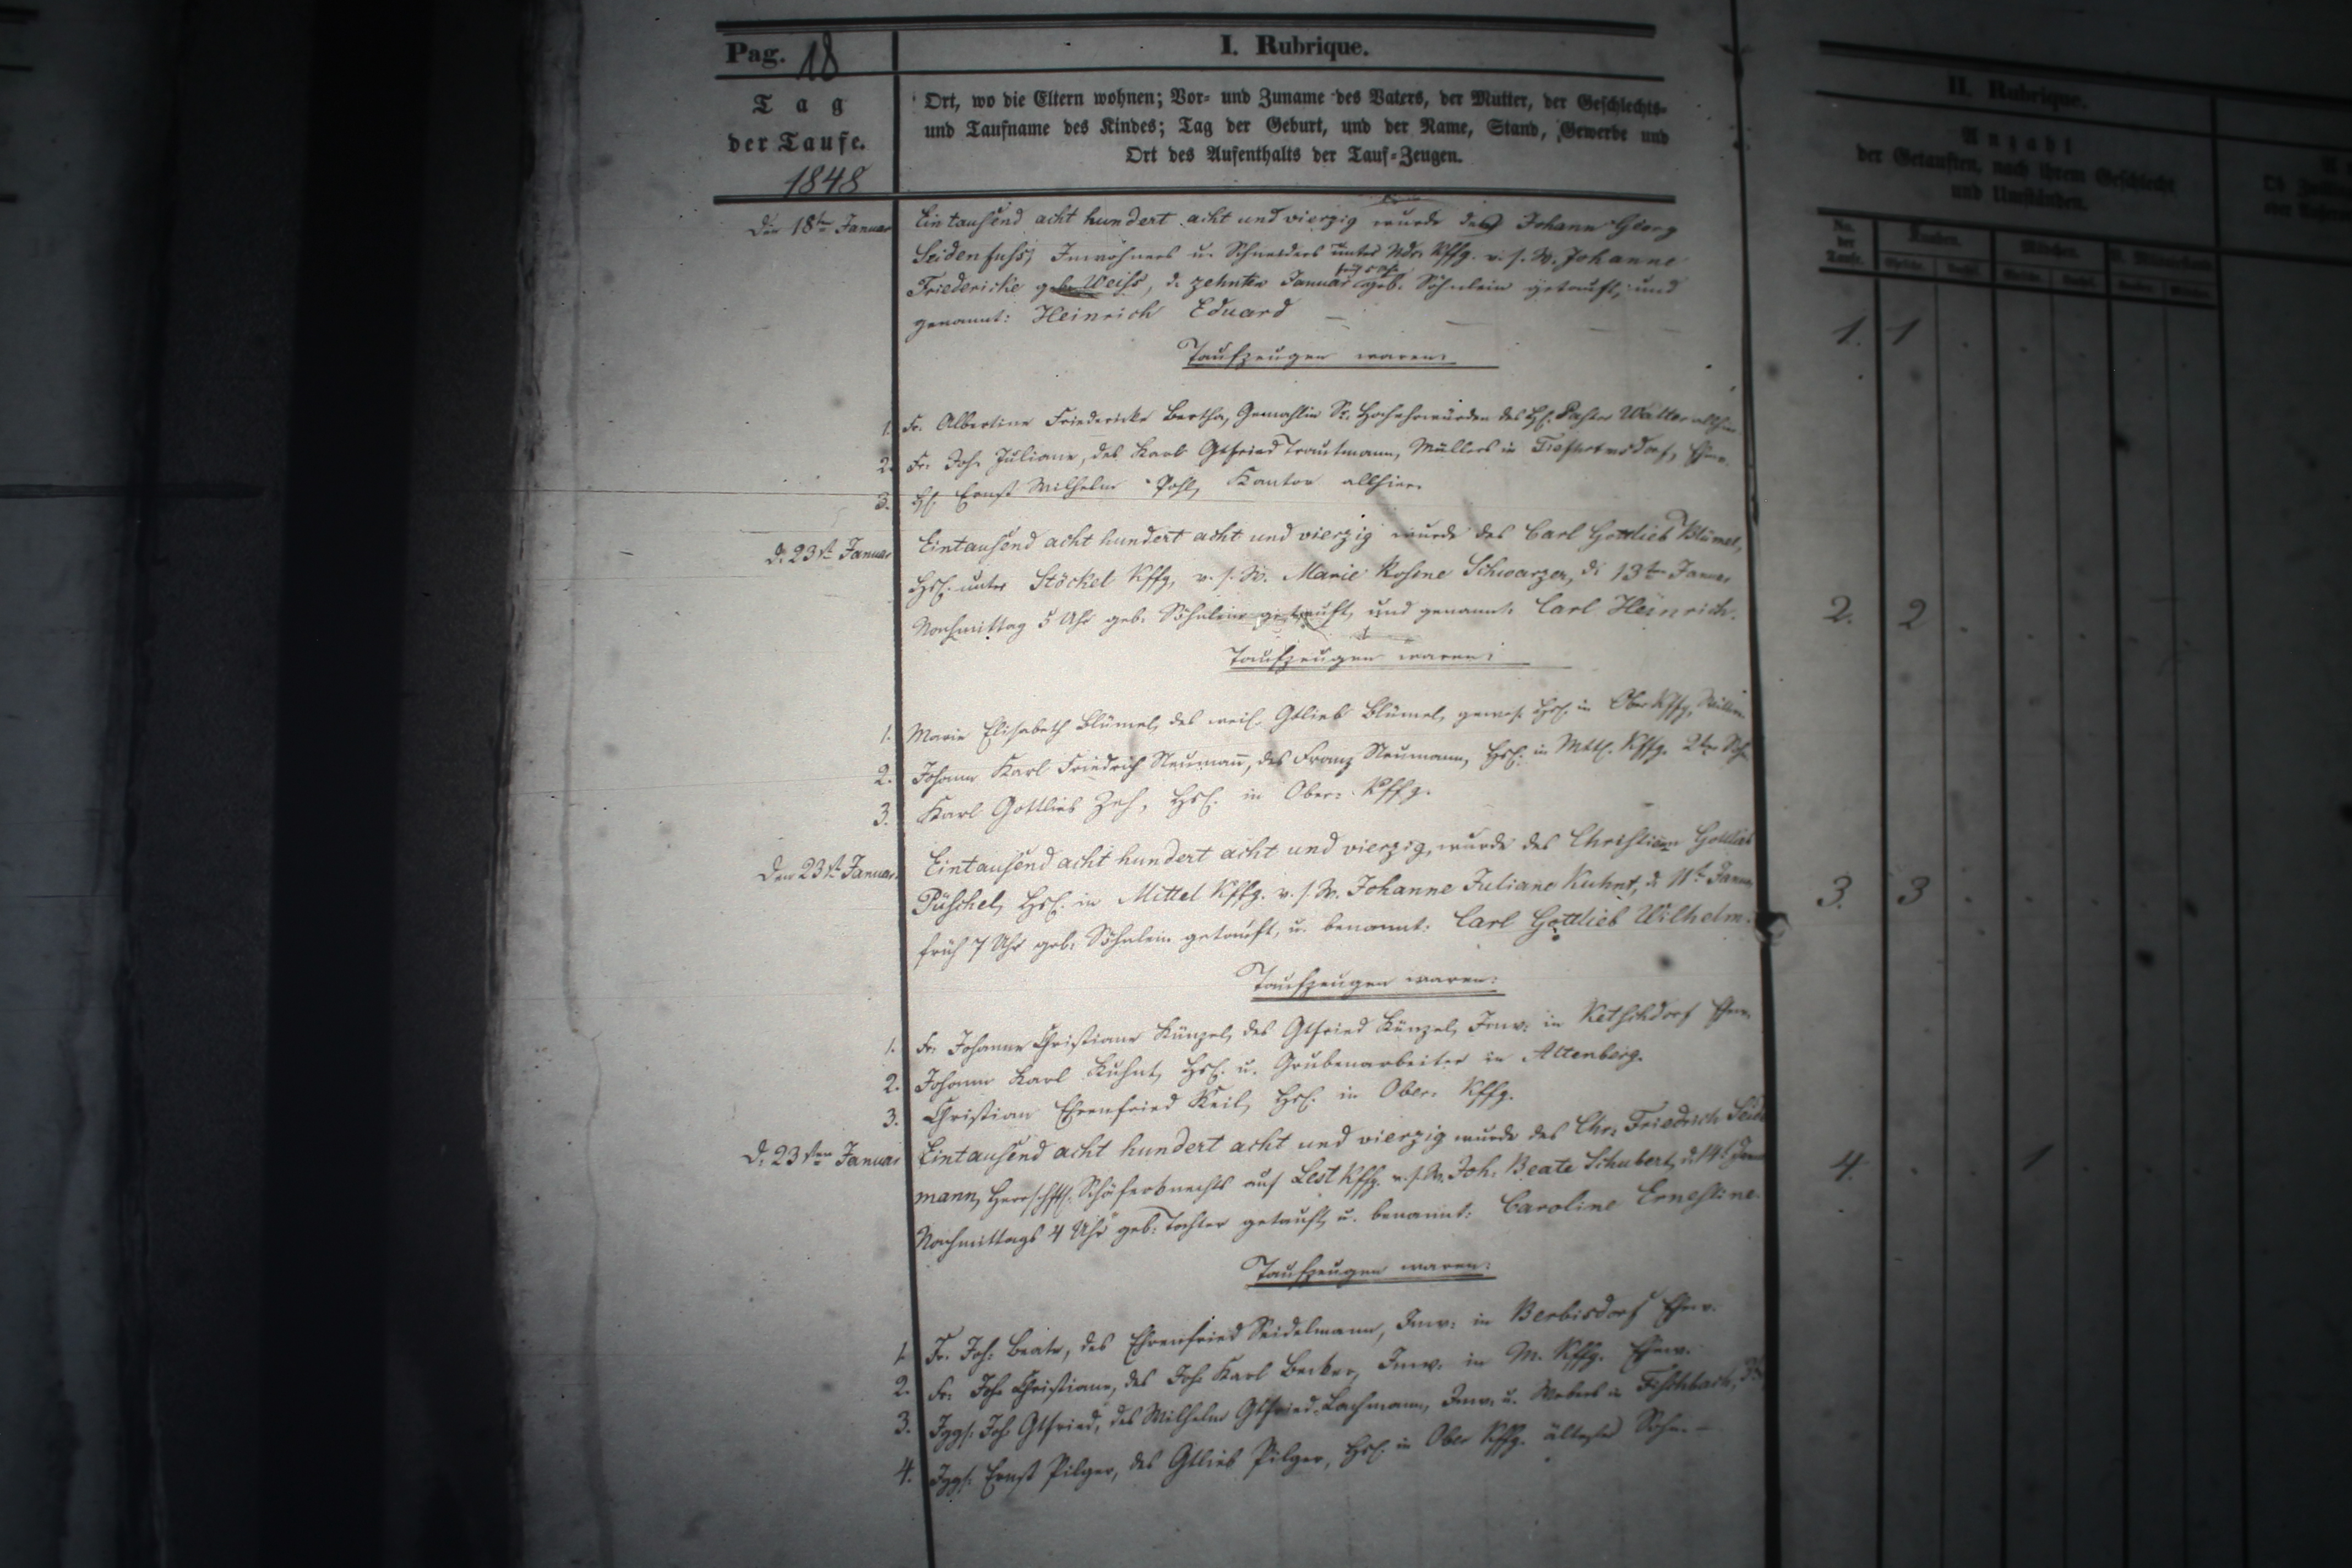 Pag. 18
I. Rubrique.
Tag
der Taufe.
1848
Ort, wo die Eltern wohnen; Vor- und Zuname des Vaters, der Mutter, der Geschlechts-
und Taufname des Kindes; Tag der Geburt, und der Name, Stand, Gewerbe und
Ort des Aufenthalts der Tauf-Zeugen.
II. Rubrique.
Anzahl
der Getauften, nach ihrem Geschlecht
und Umständen.
No. der Taufe.
Knaben. Mädchen.
Den 18ten Januar
Eintausend acht hundert acht und vierzig wurde des Johann Georg
Seidenfuss, Inwohners u. Schneiders unter Ndr. Kffg. v. s. W. Johanne
Friedericke geb. Weiss, d. zehnten Januar geb. Söhnlein getauft, und
genannt: Heinrich Eduard
1. 1
Taufzeugen waren:
1. Fr. Albertine Friedericke Bertha, Gemahlin Sr. Hochehrwürden des H. Pastor Walter allhier.
2. Fr. Joh. Juliane, des Karl Gtfried Trautmann, Müllers in Tiefhartmsdorf, Ehew.
3. H. Ernst Wilhelm Pohl, Kantor allhier.
d. 23st. Januar
Eintausend acht hundert acht und vierzig wurde des Carl Gottlieb Blümel,
Hsl. unter Stöckel Kffg, v. s. W. Marie Rosine Schwarzer, d. 13ten Januar
Nachmittag 5 Uhr geb. Söhnlein getauft, und genannt. Carl Heinrich.
2. 2
Taufzeugen waren:
1. Marie Elisabeth Blümel, des weil. Gtlieb Blümel, gewes. Hsl. in Ober Kffg,
2. Johann Karl Friedrich Neumann, des Franz Neumann, Hsl. in Mttl. Kffg. 2ter
3. Karl Gottlieb Zeh, Hsl. in Ober: Kffg.
Den 23st. Januar
Eintausend acht hundert acht und vierzig, wurde des Christian Gottlieb
Püschel, Hsl. in Mittel Kffg. v. s. W. Johanne Juliane Kuhnt, d. 11t. Januar
früh 7 Uhr geb. Söhnlein getauft, u. benannt: Carl Gottlieb Wilhelm.
3. 3
Taufzeugen waren:
1. Fr. Johanne Christiane Künzel, des Gtfried Künzel, Inw: in Ketschdorf Ehew.
2. Johann Karl Kuhnt, Hsl. u. Grubenarbeiter in Altenberg.
3. Christian Ehrenfried Keil, Hsl. in Ober: Kffg.
d. 23sten Januar
Eintausend acht hundert acht und vierzig wurde des Chr. Friedrich Seidel
mann, Herrschftl. Schäferknechts auf Lest Kffg. v. s. W. Joh. Beate Schubert, d. 14t. Januar
Nachmittags 4 Uhr geb. Tochter getauft, u. benannt: Caroline Ernestine.
4. 1
Taufzeugen waren:
1. Fr. Joh. Beate, des Ehrenfried Seidelmann, Inw: in Berbisdorf Ehew.
2. Fr. Joh. Christiane, des Joh. Karl Becker, Inw. in M. Kffg. Ehew.
3. Iggs. Joh. Gtfried, des Wilhelm Gtfried Lachmann, Inw. u. Webers in Fischbach,
4. Iggs. Ernst Pilger, des Gtlieb Pilger, Hsl. in Ober Kffg. ältester Sohn.